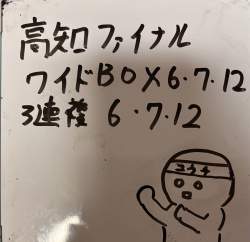 高知ファイナル
ワイドBOX6・7・12
3連複 6・7.12
コウチ